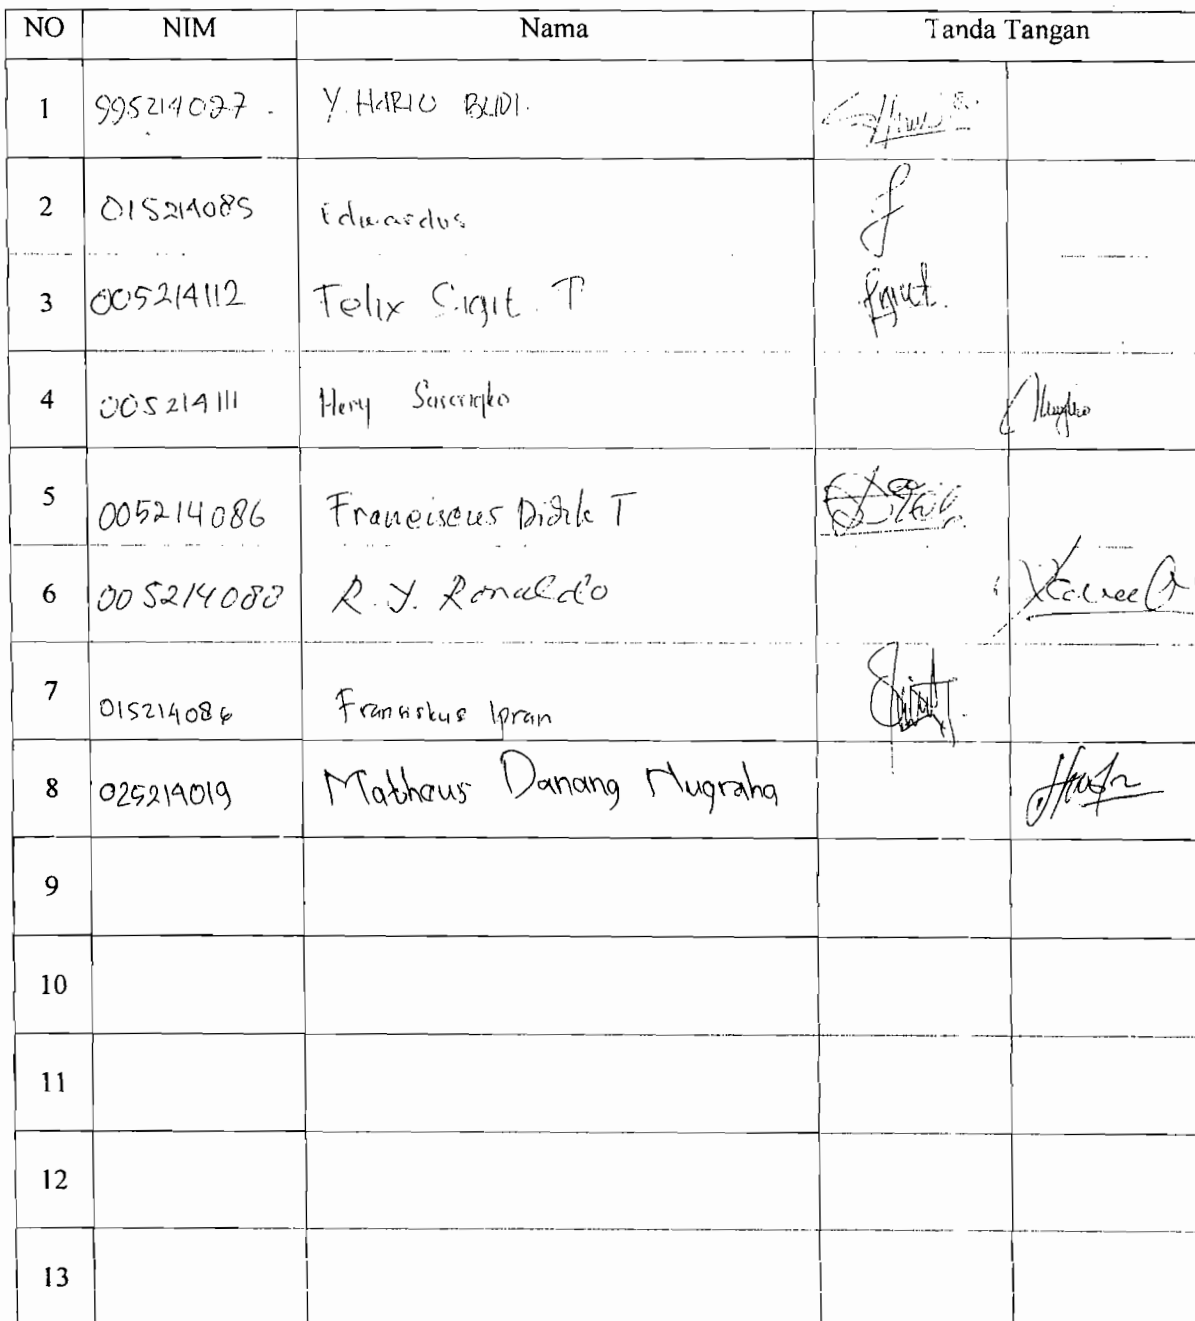 NO NIM Nama Tanda Tangan
1 995214027 Y. HARIO BUDI.
2 015214085 Eduardus
3 005214112 Felix Sigit. T
4 005214111 Hery
5 005214086 Franciscus Didik T
6 005214088 R. Y. Ronaldo
7 015214086 Fransiskus Ipran
8 025214019 Matheus Danang Nugraha
9
10
11
12
13